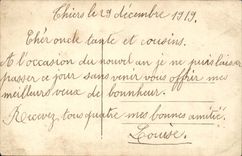 Thiers le 29 décembre 1919.
Chér oncle tante et cousins.
A l'occasion du nouvel an je ne puis laisser
passer ce jour sans venir vous offrir mes
meilleurs vœux de bonheur.
Recevez tous quatre mes bonnes amitiés
Louise.